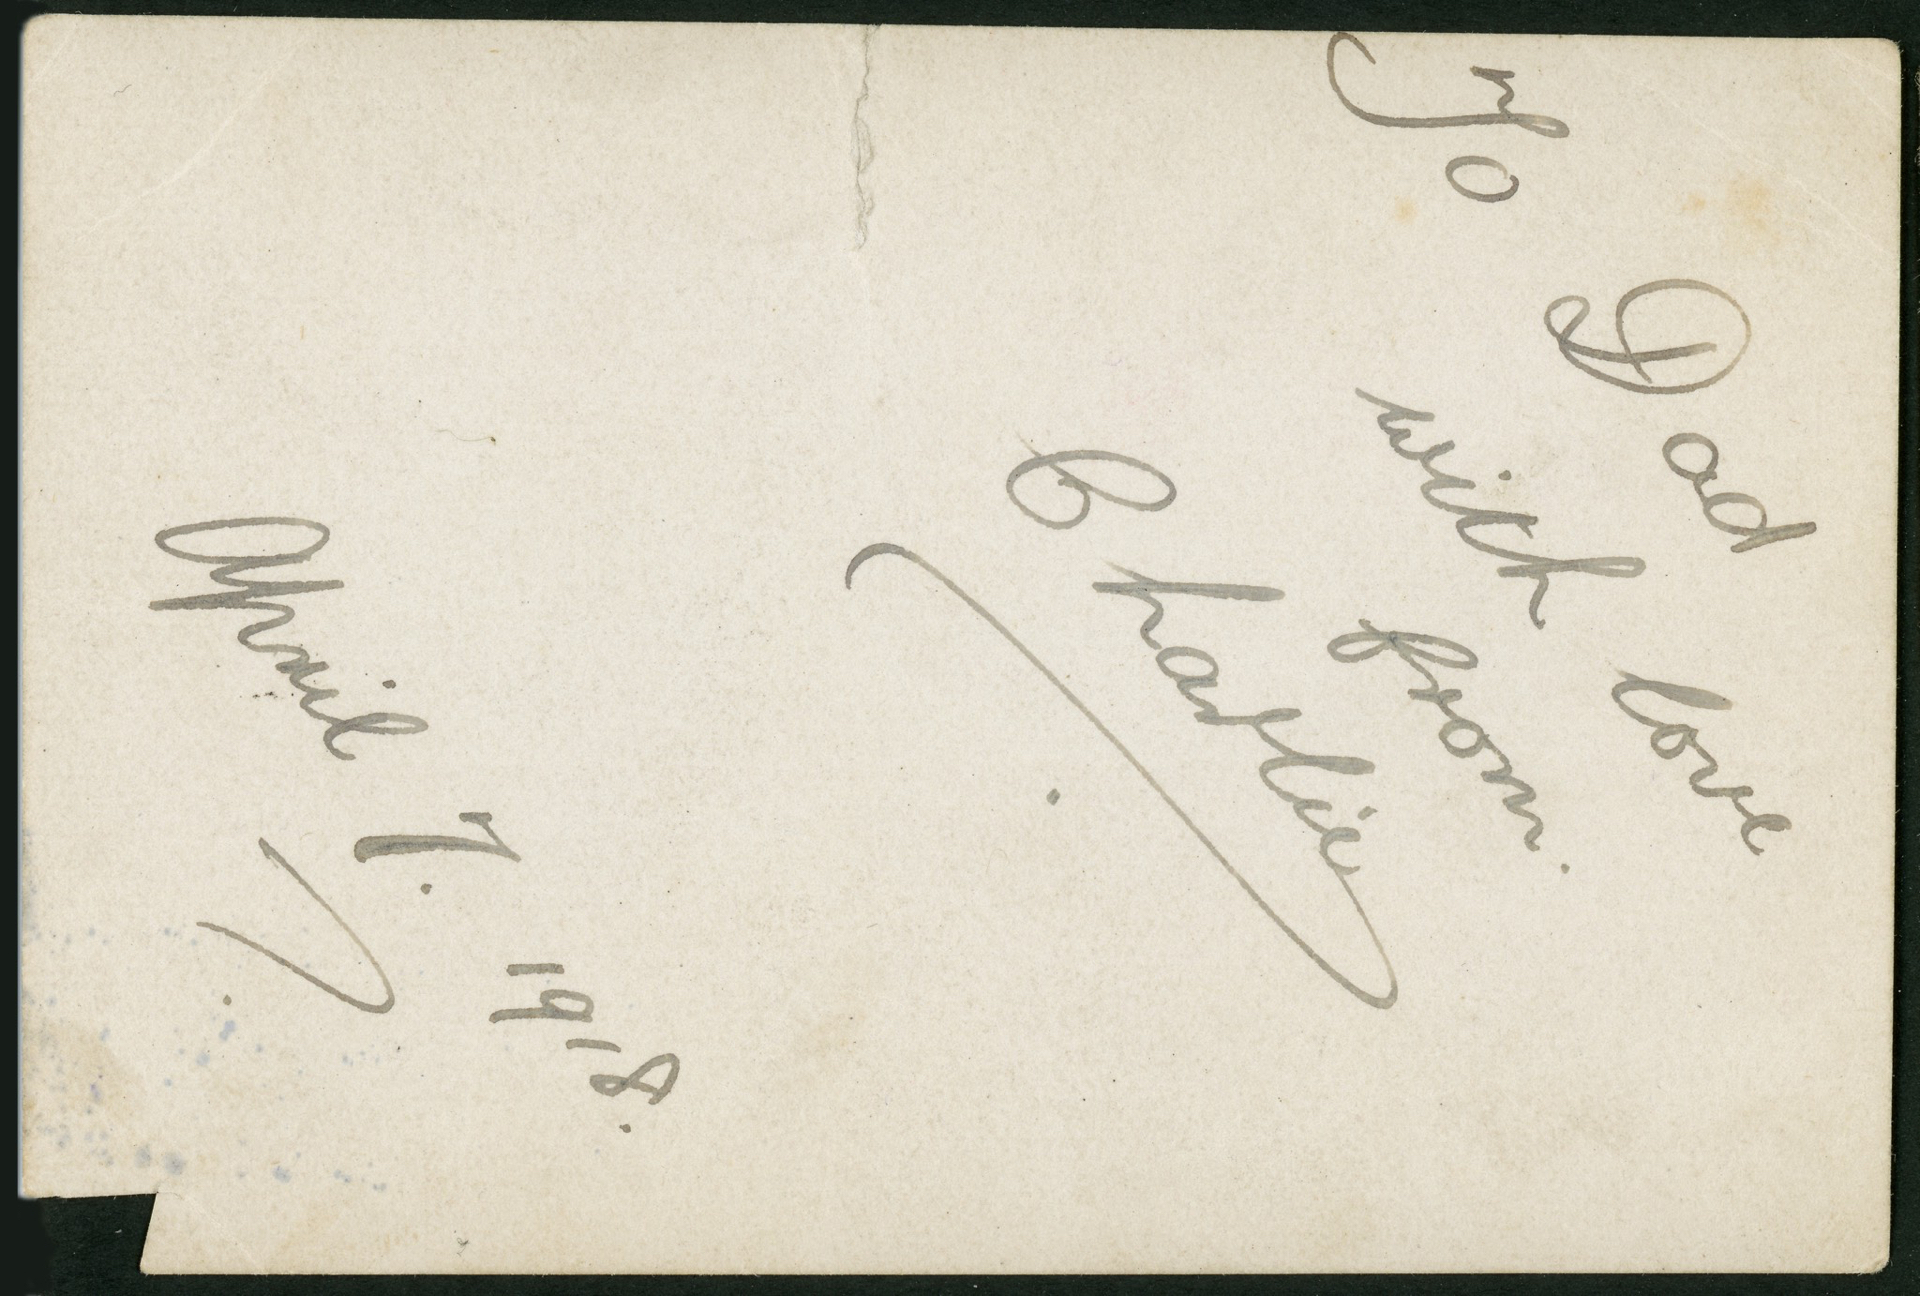 To Dad
with love
from.
Charlie
April 7. 1918.